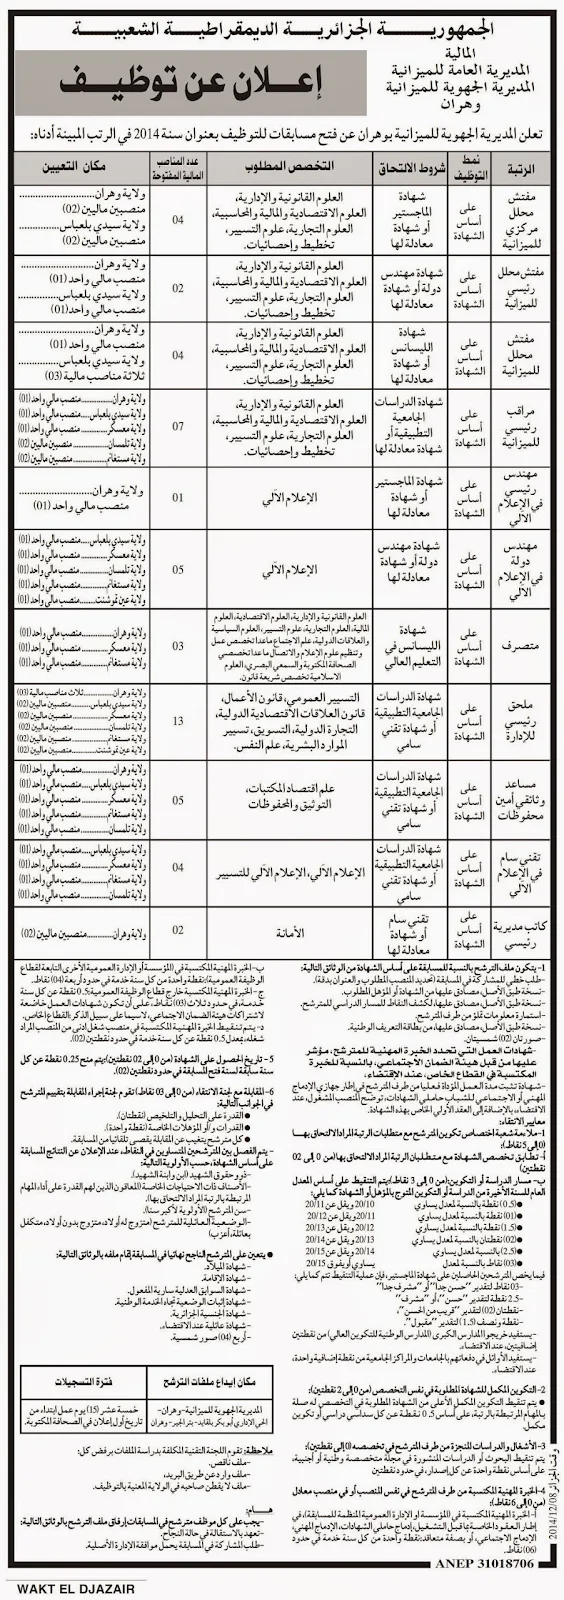 الجمهورية الجزائرية الديمقراطية الشعبية
المالية
المديرية العامة للميزانية
المديرية الجهوية للميزانية
وهران
إعلان عن توظيف
تعلن المديرية الجهوية للميزانية بوهران عن فتح مسابقات للتوظيف بعنوان سنة 2014 في الرتب المبينة أدناه:
الرتبة
نمط التوظيف
شروط الالتحاق
التخصص المطلوب
عدد المناصب المالية المفتوحة
مكان التعيين
مفتش محلل مركزي للميزانية
على أساس الشهادة
شهادة الماجستير أو شهادة معادلة لها
العلوم القانونية والإدارية، العلوم الاقتصادية والمالية والمحاسبية، العلوم التجارية، علوم التسيير، تخطيط وإحصائيات.
04
ولاية وهران.............. منصبين ماليين (02)
ولاية سيدي بلعباس...... منصبين ماليين (02)
مفتش محلل رئيسي للميزانية
على أساس الشهادة
شهادة مهندس دولة أو شهادة معادلة لها
العلوم القانونية والإدارية، العلوم الاقتصادية والمالية والمحاسبية، العلوم التجارية، علوم التسيير، تخطيط وإحصائيات.
02
ولاية وهران.............. منصب مالي واحد (01)
ولاية سيدي بلعباس...... منصب مالي واحد (01)
مفتش محلل للميزانية
على أساس الشهادة
شهادة الليسانس أو شهادة معادلة لها
العلوم القانونية والإدارية، العلوم الاقتصادية والمالية والمحاسبية، العلوم التجارية، علوم التسيير، تخطيط وإحصائيات.
04
ولاية وهران.............. منصب مالي واحد (01)
ولاية سيدي بلعباس...... ثلاثة مناصب مالية (03)
مراقب رئيسي للميزانية
على أساس الشهادة
شهادة الدراسات الجامعية التطبيقية أو شهادة معادلة لها
العلوم القانونية والإدارية، العلوم الاقتصادية والمالية والمحاسبية، العلوم التجارية، علوم التسيير، تخطيط وإحصائيات.
07
ولاية وهران..............منصب مالي واحد (01)
ولاية سيدي بلعباس......منصب مالي واحد (01)
ولاية معسكر..............منصب مالي واحد (01)
ولاية تلمسان.............منصبين ماليين (02)
ولاية مستغانم............منصبين ماليين (02)
مهندس رئيسي في الإعلام الآلي
على أساس الشهادة
شهادة الماجستير أو شهادة معادلة لها
الإعلام الآلي
01
ولاية وهران.............. منصب مالي واحد (01)
مهندس دولة في الإعلام الآلي
على أساس الشهادة
شهادة مهندس دولة أو شهادة معادلة لها
الإعلام الآلي
05
ولاية سيدي بلعباس......منصب مالي واحد (01)
ولاية معسكر..............منصب مالي واحد (01)
ولاية تلمسان.............منصب مالي واحد (01)
ولاية مستغانم............منصب مالي واحد (01)
ولاية عين تموشنت........منصب مالي واحد (01)
متصرف
على أساس الشهادة
شهادة الليسانس في التعليم العالي
العلوم القانونية والإدارية، العلوم الاقتصادية، العلوم المالية، العلوم التجارية، علوم التسيير، العلوم السياسية والعلاقات الدولية، علم الاجتماع ماعدا تخصص عمل وتنظيم علوم الإعلام والاتصال ماعدا تخصصي الصحافة المكتوبة والسمعي البصري، العلوم الاسلامية تخصص شريعة قانون.
03
ولاية وهران..............منصب مالي واحد (01)
ولاية معسكر..............منصب مالي واحد (01)
ولاية مستغانم............منصب مالي واحد (01)
ملحق رئيسي للإدارة
على أساس الشهادة
شهادة الدراسات الجامعية التطبيقية أو شهادة تقني سامي
التسيير العمومي، قانون الأعمال، قانون العلاقات الاقتصادية الدولية، التجارة الدولية، التسويق، تسيير الموارد البشرية، علم النفس.
13
ولاية وهران..............ثلاث مناصب مالية (03)
ولاية سيدي بلعباس......منصبين ماليين (02)
ولاية معسكر..............منصبين ماليين (02)
ولاية تلمسان.............منصبين ماليين (02)
ولاية مستغانم............منصبين ماليين (02)
ولاية عين تموشنت........منصبين ماليين (02)
مساعد وثائقي أمين محفوظات
على أساس الشهادة
شهادة الدراسات الجامعية التطبيقية أو شهادة تقني سامي
علم اقتصاد المكتبات، التوثيق والمحفوظات
05
ولاية وهران..............منصب مالي واحد (01)
ولاية سيدي بلعباس......منصب مالي واحد (01)
ولاية معسكر..............منصب مالي واحد (01)
ولاية مستغانم............منصب مالي واحد (01)
ولاية تلمسان.............منصب مالي واحد (01)
تقني سام في الإعلام الآلي
على أساس الشهادة
شهادة الدراسات الجامعية التطبيقية أو شهادة تقني سامي
الإعلام الآلي، الإعلام الآلي للتسيير
04
ولاية سيدي بلعباس......منصب مالي واحد (01)
ولاية معسكر..............منصب مالي واحد (01)
ولاية مستغانم............منصب مالي واحد (01)
ولاية تلمسان.............منصب مالي واحد (01)
كاتب مديرية رئيسي
على أساس الشهادة
تقني سام أو شهادة معادلة لها
الأمانة
02
ولاية وهران..............منصبين ماليين (02)
1- يتكون ملف الترشح بالنسبة للمسابقة على أساس الشهادة من الوثائق التالية:
- طلب خطي للمشاركة في المسابقة (تحديد المنصب المطلوب والعنوان بدقة).
- نسخة طبق الأصل، مصادق عليها من الشهادة أو المؤهل المطلوب.
- نسخة طبق الأصل، مصادق عليها، لكشف النقاط للمسار الدراسي للمترشح.
- استمارة معلومات تملأ من طرف المترشح.
- نسخة طبق الأصل، مصادق عليها، من بطاقة التعريف الوطنية.
- صورتان (02) شمسيتان.
- شهادات العمل التي تحدد الخبرة المهنية للمترشح، مؤشر عليها من قبل هيئة الضمان الاجتماعي، بالنسبة للخبرة المكتسبة في القطاع الخاص، عند الاقتضاء.
- شهادة تثبت مدة العمل المؤداة فعليا من طرف المترشح في إطار جهازي الإدماج المهني أو الاجتماعي للشباب حاملي الشهادات، توضح المنصب المشغول، عند الاقتضاء، بالإضافة إلى العقد الأولي الخاص بهذه الشهادة.
معايير الانتقاء:
1- ملاءمة شعبة اختصاص تكوين المترشح مع متطلبات الرتبة المراد الالتحاق بها (0 إلى 5 نقاط).
أ- تطابق تخصص الشهادة مع متطلبات الرتبة المراد الالتحاق بها (من 0 إلى 02 نقطتين)
ب- مسار الدراسة أو التكوين: (من 0 إلى 3 نقاط)، يتم التنقيط على أساس المعدل العام للسنة الأخيرة من الدراسة أو التكوين المتوج بالمؤهل أو الشهادة كما يلي:
● (0.5) نقطة بالنسبة لمعدل يساوي 20/10 ويقل عن 20/11
● (01) نقطة بالنسبة لمعدل يساوي 20/11 ويقل عن 20/12
● (1.5) نقطة بالنسبة لمعدل يساوي 20/12 ويقل عن 20/13
● (02) نقطتان بالنسبة لمعدل يساوي 20/13 ويقل عن 20/14
● (2.5) نقطة بالنسبة لمعدل يساوي 20/14 ويقل عن 20/15
● (03) نقاط بالنسبة لمعدل يساوي أو يفوق 20/15
فيما يخص المترشحين الحاصلين على شهادة الماجستير، فإن عملية التنقيط تتم كما يلي:
- 03 نقاط لتقدير "حسن جدا" أو "مشرف جدا"
- 2.5 نقطة لتقدير "حسن"، أو "مشرف"
- نقطتان (02) لتقدير "قريب من الحسن"،
- نقطة ونصف (1.5) لتقدير "مقبول".
- يستفيد خريجو المدارس الكبرى (المدارس الوطنية للتكوين العالي) من نقطتين إضافيتين، عند الاقتضاء.
- يستفيد الأوائل في دفعاتهم بالجامعات والمراكز الجامعية من نقطة إضافية واحدة، عند الاقتضاء.
2- التكوين المكمل للشهادة المطلوبة في نفس التخصص (من 0 إلى 2 نقطتين):
● يتم تنقيط التكوين المكمل الأعلى من الشهادة المطلوبة في التخصص له صلة بالمهام المرتبطة بالرتبة، على أساس 0.5 نقطة عن كل سداسي دراسي أو تكوين مكمل.
3- الأشغال والدراسات المنجزة من طرف المترشح في تخصصه (0 إلى نقطتين):
يتم تنقيط البحوث أو الدراسات المنشورة في مجلة متخصصة وطنية أو أجنبية، على أساس نقطة واحدة عن كل إصدار، في حدود نقطتين.
4- الخبرة المهنية المكتسبة من طرف المترشح في نفس المنصب أو في منصب معادل (من 0 إلى 6 نقاط):
أ- الخبرة المهنية المكتسبة في (المؤسسة أو الإدارة العمومية المنظمة للمسابقة)، في إطار العقود الخاصة بما قبل التشغيل، إدماج حاملي الشهادات، الإدماج المهني، الإدماج الاجتماعي، أو بصفة متعاقد: نقطة واحدة من كل سنة خدمة في حدود (06) نقاط.
ب- الخبرة المهنية المكتسبة في (المؤسسة أو الإدارة العمومية الأخرى التابعة لقطاع الوظيفة العمومية): نقطة واحدة من كل سنة خدمة في حدود أربعة (04) نقاط.
ج- الخبرة المهنية المكتسبة خارج قطاع الوظيف العمومية: 0.5 نقطة عن كل سنة خدمة، في حدود ثلاث (03) نقاط، على أن تكون شهادات العمل خاضعة لاشتراكات هيئة الضمان الاجتماعي، لاسيما على سبيل الذكر القطاع الخاص.
د- يتم تنقيط الخبرة المهنية المكتسبة في منصب شغل أدنى من المنصب المراد شغله، بمعدل 0.5 نقطة عن كل سنة خدمة في حدود نقطتين (02).
5- تاريخ الحصول على الشهادة (من 0 إلى 02 نقطتين): يتم منح 0.25 نقطة عن كل سنة سابقة لسنة فتح المسابقة في حدود نقطتين (02).
6- المقابلة مع لجنة الانتقاء (من 0 إلى 03 نقاط) تقوم لجنة إجراء المقابلة بتقييم المترشح في الجوانب التالية:
● القدرة على التحليل والتلخيص (نقطتان).
● القدرات و/أو المؤهلات الخاصة (نقطة واحدة).
● كل مترشح يتغيب عن المقابلة يقصى تلقائيا من المسابقة.
- يتم الفصل بين المترشحين المتساوين في النقاط، عند الإعلان عن النتائج المسابقة على أساس الشهادة، حسب الأولوية التالية:
- ذوو حقوق الشهيد (ابن وابنة الشهيد).
- الأصناف ذات الاحتياجات الخاصة (المعاقون الذين لهم القدرة على أداء المهام المرتبطة بالرتبة المراد الالتحاق بها).
- سن المترشح (الأولوية لأكبر سنا).
- الوضعية العائلية للمترشح (متزوج له أولاد، متزوج بدون أولاد، متكفل بعائلة، أعزب)
● يتعين على المترشح الناجح نهائيا في المسابقة إتمام ملفه بالوثائق التالية:
- شهادة الميلاد.
- شهادة الإقامة.
- شهادة السوابق العدلية سارية المفعول.
- شهادة إثبات الوضعية تجاه الخدمة الوطنية.
- شهادة الجنسية الجزائرية.
- شهادة عائلية عند الاقتضاء.
- أربع (04) صور شمسية.
مكان إيداع ملفات الترشح
فترة التسجيلات
المديرية الجهوية للميزانية -وهران- الحي الإداري أبو بكر بلقايد-بئر الجير- وهران
خمسة عشر (15) يوم عمل ابتداء من تاريخ أول إعلان في الصحافة المكتوبة.
ملاحظة: تقوم اللجنة التقنية المكلفة بدراسة الملفات برفض كل:
- ملف ناقص.
- ملف وارد عن طريق البريد.
- ملف لا يقطن صاحبه في الولاية المعنية بالتوظيف.
هـــام:
- يجب على كل موظف مترشح في المسابقات، إرفاق ملف الترشح بالوثائق التالية:
- تعهد بالاستقالة في حالة النجاح.
- طلب المشاركة في المسابقة يحمل موافقة الإدارة الأصلية.
وقت الجزائر 2014/12/08
ANEP 31018706
WAKT EL DJAZAIR